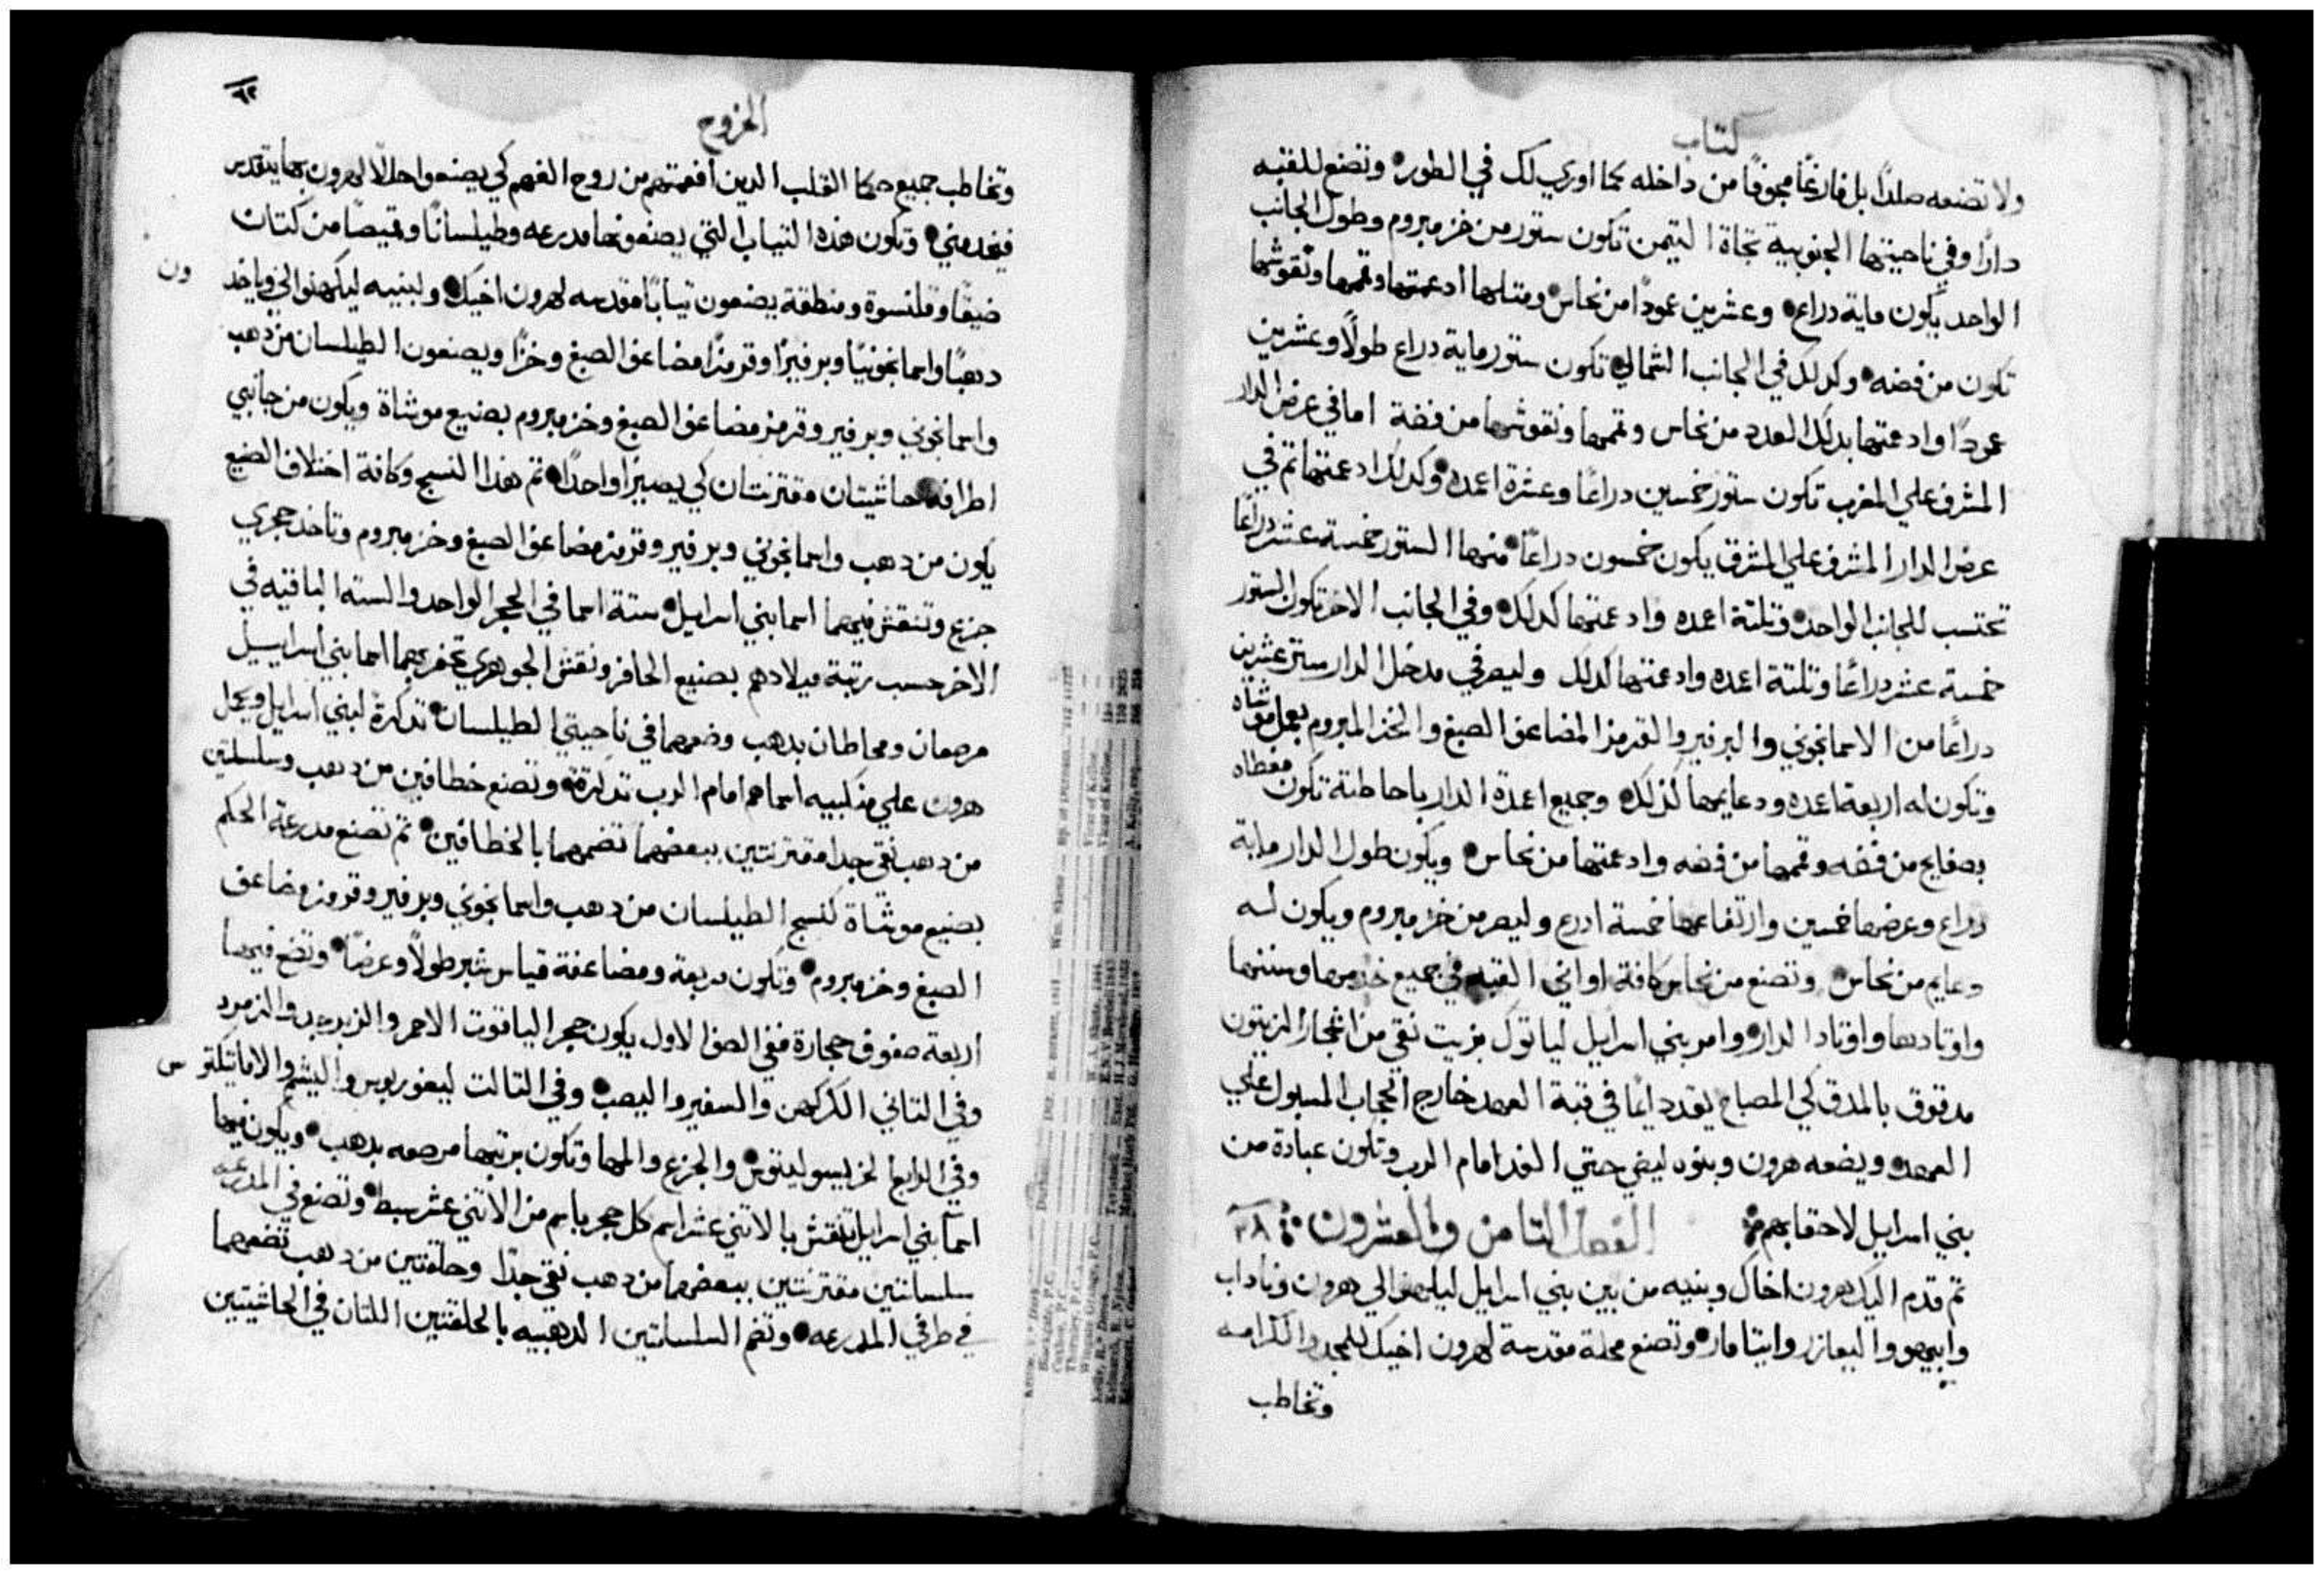 كتاب
ولا تصنعه صلدًا بل فارغًا مجوفًا من داخله كما اوري لك في الطور وتصنع للقبه
دارًا وفي ناحيتها الجنوبية تجاة التيمن تكون ستور من خز مبروم وطول الجانب
الواحد يكون ماية دراع وعشرين عمودًا من نحاس ومتلها ادعمتها وقممها ونقوشها
تكون من فضه وكدلك في الجانب الشمالي تكون ستور ماية دراع طولًا وعشرين
عمودًا وادعمتها بدلك العدد من نحاس وقممها ونقوشها من فضة اما في عرض الدار
المشرف علي المغرب تكون ستور خمسين دراعًا وعشرة اعمده وكدلك ادعمتها تم في
عرض الدار المشرف علي المشرق يكون خمسون دراعًا منها الستور خمسة عشر دراعًا
تحتسب للجانب الواحد وتلتة اعمده وادعمتها كدلك وفي الجانب الاخر تكون الستور
خمسة عشر دراعًا وتلتة اعمده وادعمتها كدلك وليصر في مدخل الدار ستر عشرين
دراعًا من الاسمانجوني والبرفير والقرمز المضاعف الصبغ والخز المبروم بعمل موشاه
وتكون له اربعة اعمده ودعايمها كدلك وجميع اعمدة الدار باحاطتة تكون مغطاه
بصفايح من فضه وقممها من فضه وادعمتها من نحاس ويكون طول الدار ماية
دراع وعرضها خمسين وارتفاعها خمسة ادرع وليصر من خز مبروم ويكون له
دعايم من نحاس وتصنع من نحاس كافة اواني القبه في جميع خدمها وسننها
واوتادها واوتاد الدار وامر بني اسرايل لياتوك بزيت نقي من اشجار الزيتون
مدقوق بالمدق كي المصباح يقد دايمًا في قبة العهد خارج الحجاب المسبول علي
العهد ويضعه هرون وبنوه ليضي حتي الغد امام الرب وتكون عبادة من
بني اسرايل لاحقابهم الفصل التامن والعشرون ٢٨
تم قدم اليك هرون اخاك وبنيه من بين بني اسرايل ليكهنوا لي هرون وناداب
وابيهو واليعازر وايتامار وتصنع حلة مقدسة لهرون اخيك للمجد والكرامه
وتخاطب
الخروج
٦٢
وتخاطب جميع حكما القلب الدين افعمتهم من روح الفهم كي يصنعوا حللًا لهرون بها يتقدس
فيخدمني وتكون هذه التياب التي يصنعونها مدرعه وطيلسانًا وقميصًا من كتان
ضيقًا وقلنسوة ومنطقة يصنعون تيابًا مقدسه لهرون اخيك ولبنيه ليكهنوا لي وياخد
ون
دهبًا واسمانجونيًا وبرفيرًا وقرمزًا مضاعف الصبغ وخزًا ويصنعون الطيلسان من دهب
واسمانجوني وبرفير وقرمز مضاعف الصبغ وخز مبروم بصنيع موشاة ويكون من جانبي
اطرافه حاشيتان مقترنتان كي يصيرا واحدًا تم هذا النسج وكافة اختلاف الصنيع
يكون من دهب واسمانجوني وبرفير وقرمز مضاعف الصبغ وخز مبروم وتاخد حجري
جزع وتنقش فيهما اسما بني اسرايل ستة اسما في الحجر الواحد والسته الباقيه في
الاخر حسب رتبة ميلادهم بصنيع الحافر ونقش الجوهري تحفر بهما اسما بني اسراييل
مرصعان ومحاطان بدهب وضعهما في ناحيتي الطيلسان تدكرة لبني اسرايل ويحمل
هرون علي منكبيه اسماهم امام الرب تدكرة وتصنع خطافين من دهب وسلسلتين
من دهب نقي جدا مقترنتين ببعضهما تضمهما بالخطافين تم تصنع مدرعة الحكم
بصنيع موشاة كنسج الطيلسان من دهب واسمانجوني وبرفير وقرمز مضاعف
الصبغ وخز مبروم وتكون مربعة ومضاعفة قياس شبر طولًا وعرضًا وتضع فيها
اربعة صفوف حجارة ففي الصف الاول يكون حجر الياقوت الاحمر والزبرجد والزمرد
وفي التاني الكركهن والسفير واليصب وفي التالت ليغوريوس واليشم والاماتيكتو
س
وفي الرابع الخريسوليتوس والجزع والمها وتكون برتبها مرصعه بدهب ويكون فيها
اسما بني اسرايل تنقش بالاتني عشر اسم كل حجر باسم من الاتني عشر سبط وتصنع في المدرعه
سلسلتين مقترنتين ببعضهما من دهب نقي جدًا وحلقتين من دهب تضعهما
في طرفي المدرعه وتضم السلسلتين الدهبيه بالحلقتين اللتان في الحاشيتين